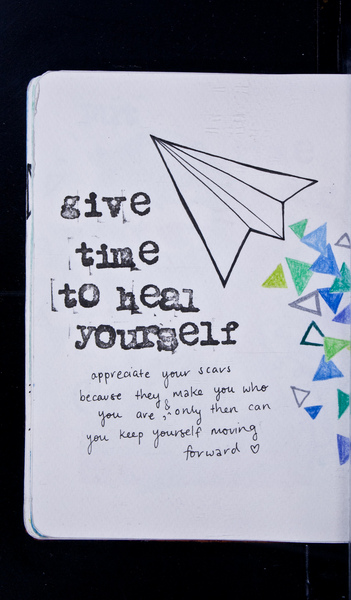 give
time
to heal
yourself
appreciate your scars
because they make you who
you are & only then can
you keep yourself moving
forward ♡